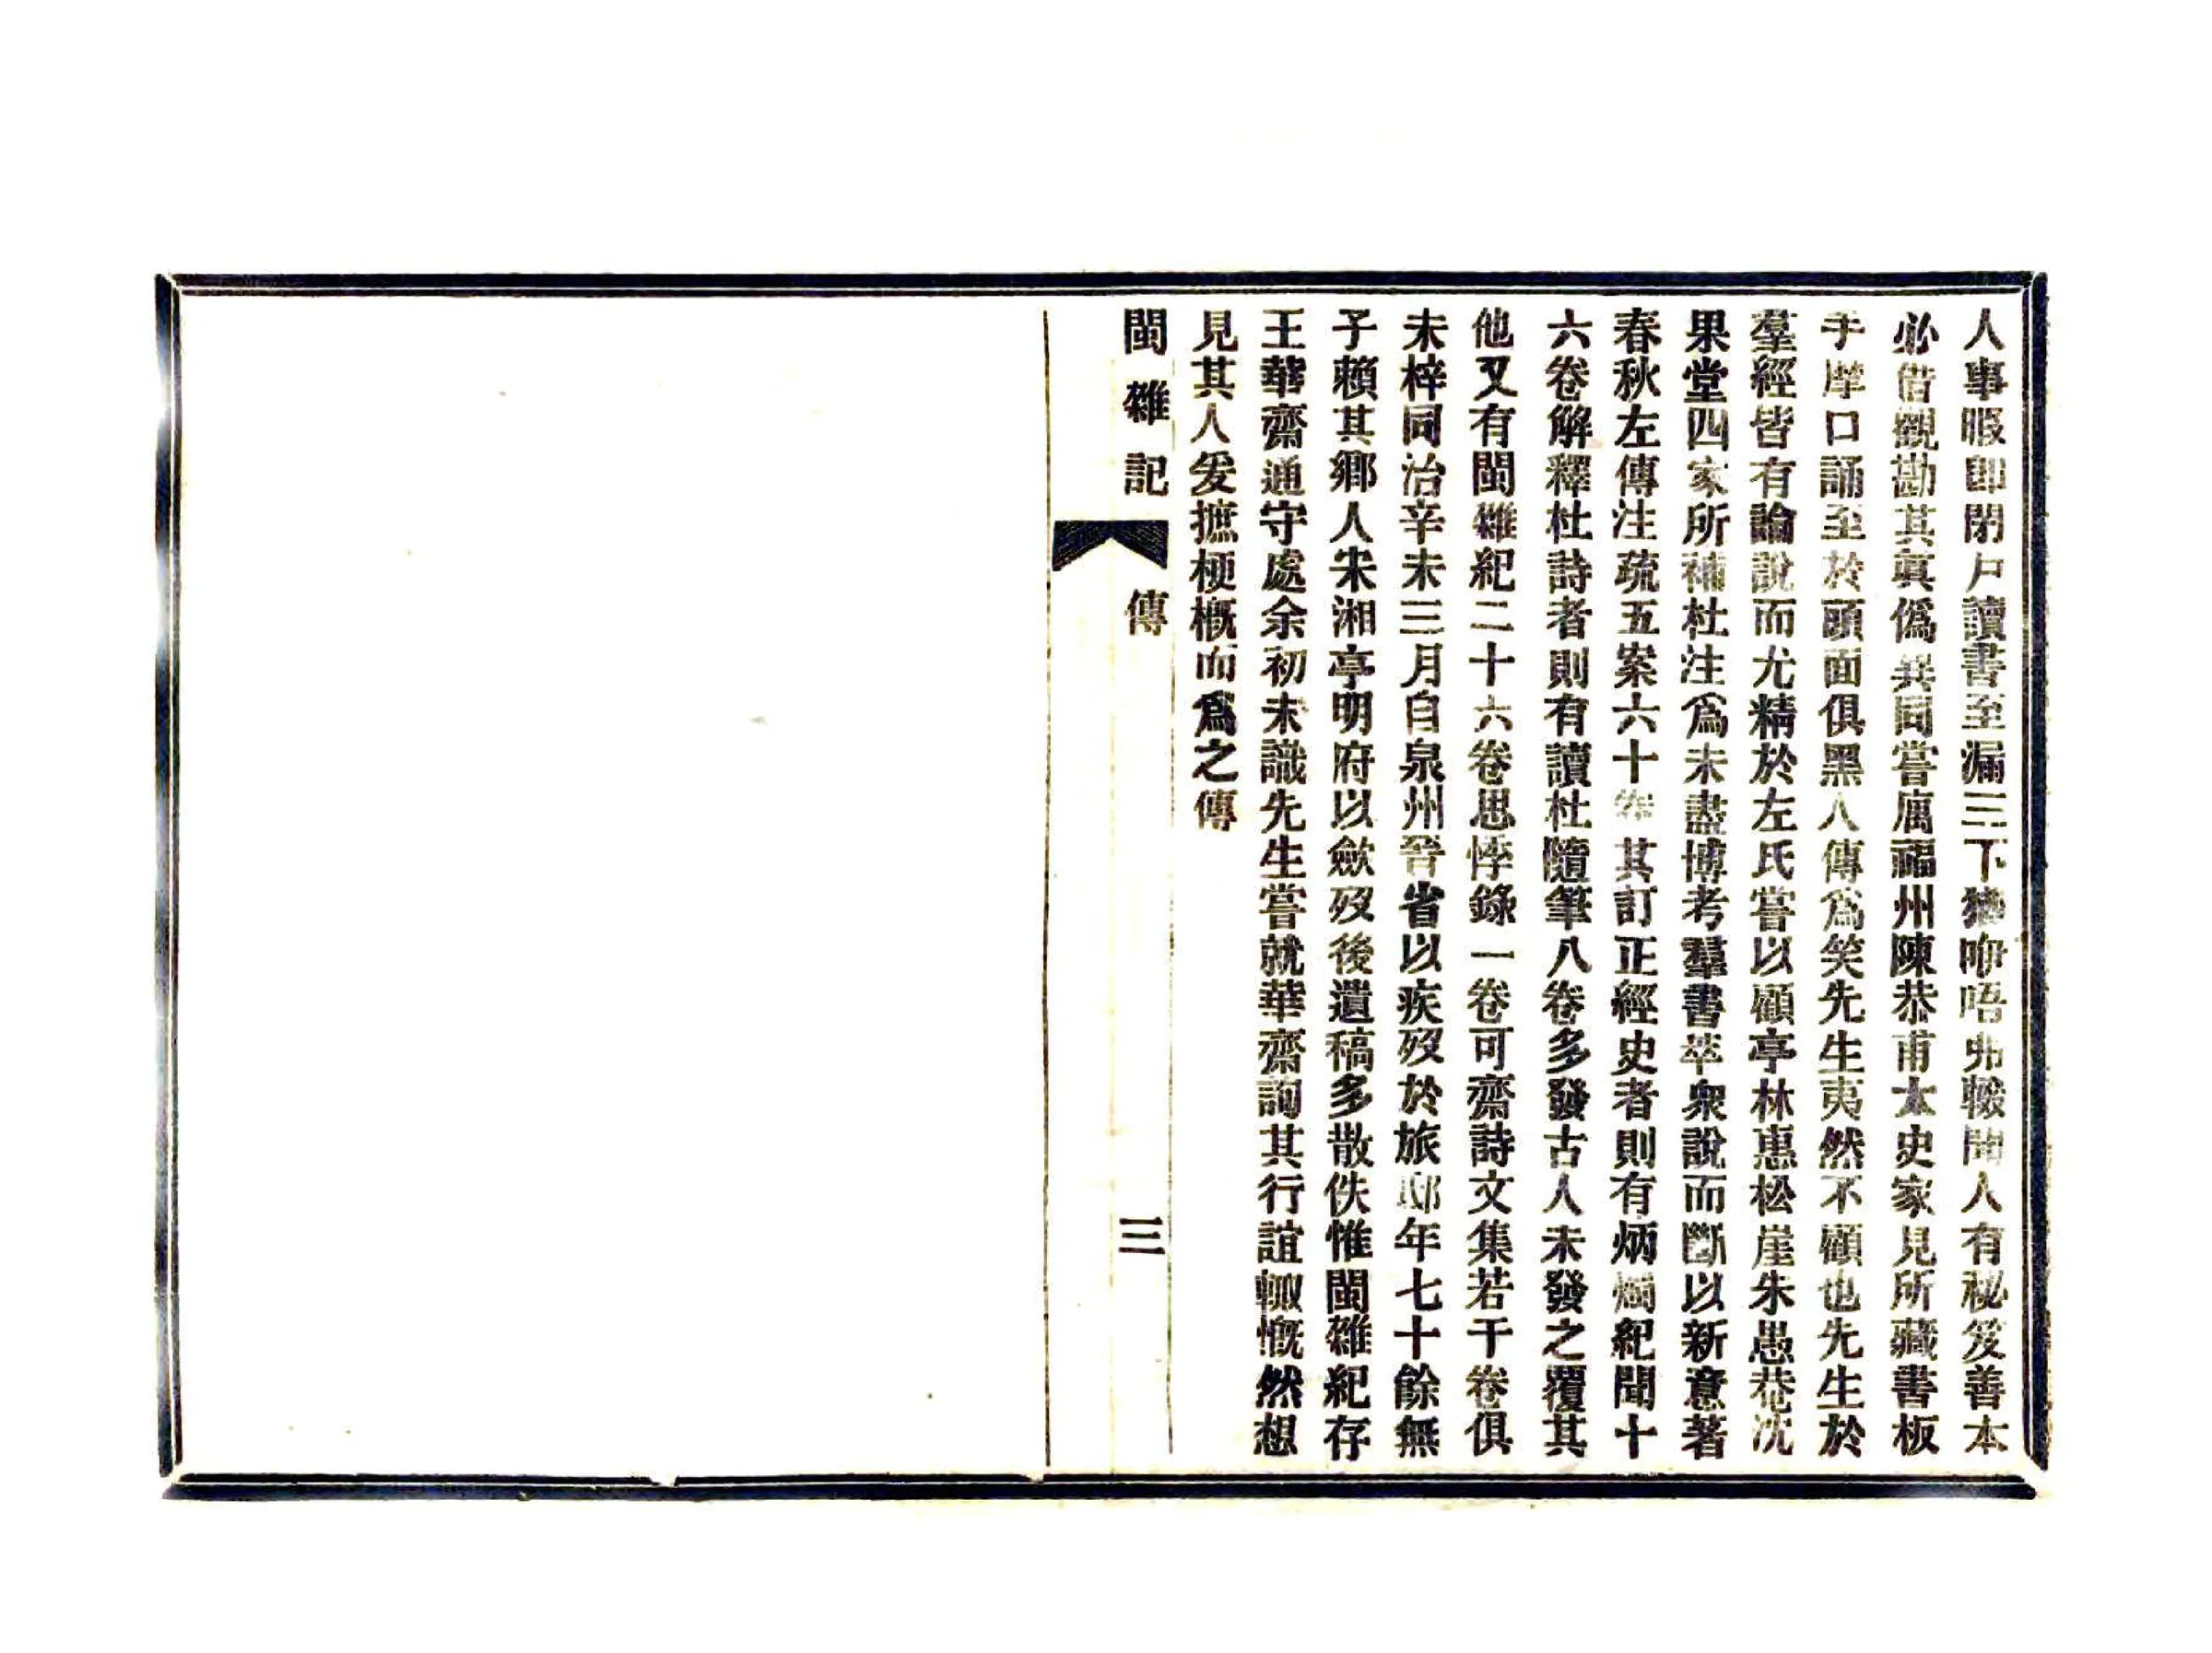 人事暇卽閉戶讀書至漏三下猶咿唔弗輟聞人有秘笈善本
必借觀勘其眞僞異同嘗寓福州陳恭甫太史家見所藏書板
手摩口誦至於頭面俱黑人傳爲笑先生夷然不顧也先生於
羣經皆有論說而尤精於左氏嘗以顧亭林惠松崖朱愚菴沈
果堂四家所補杜注爲未盡博考羣書萃衆說而斷以新意著
春秋左傳注疏五案六十卷其訂正經史者則有炳燭紀聞十
六卷解釋杜詩者則有讀杜隨筆八卷多發古人未發之覆其
他又有閩雜紀二十六卷思悸錄一卷可齋詩文集若干卷俱
未梓同治辛未三月自泉州晉省以疾歿於旅邸年七十餘無
子賴其鄉人宋湘亭明府以斂歿後遺稿多散佚惟閩雜紀存
王華齋通守處余初未識先生嘗就華齋詢其行誼輙慨然想
見其人爰摭梗概而爲之傳
閩雜記 傳 三